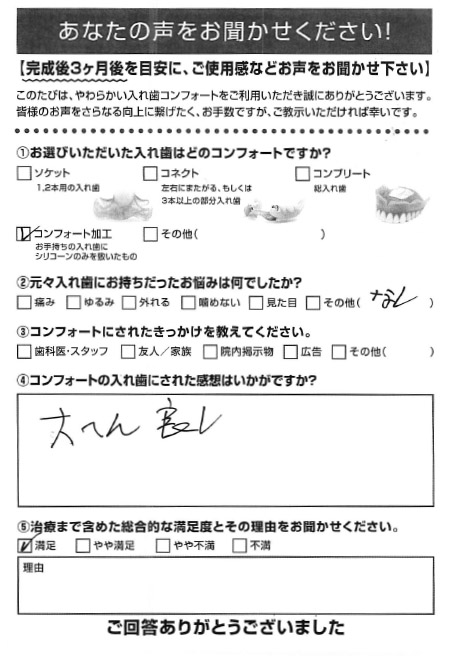 あなたの声をお聞かせください!
【完成後3ヶ月後を目安に、ご使用感などお声をお聞かせ下さい】
このたびは、やわらかい入れ歯コンフォートをご利用いただき誠にありがとうございます。
皆様のお声をさらなる向上に繋げたく、お手数ですが、ご教示いただければ幸いです。
①お選びいただいた入れ歯はどのコンフォートですか?
□ソケット □コネクト □コンプリート
1,2本用の入れ歯 左右にまたがる、もしくは 総入れ歯
3本以上の部分入れ歯
☑コンフォート加工 □その他( )
お手持ちの入れ歯に
シリコーンのみを敷いたもの
②元々入れ歯にお持ちだったお悩みは何でしたか?
□痛み □ゆるみ □外れる □噛めない □見た目 □その他( なし )
③コンフォートにされたきっかけを教えてください。
□歯科医・スタッフ □友人/家族 □院内掲示物 □広告 □その他( )
④コンフォートの入れ歯にされた感想はいかがですか?
大へん良し
⑤治療まで含めた総合的な満足度とその理由をお聞かせください。
☑満足 □やや満足 □やや不満 □不満
理由
ご回答ありがとうございました